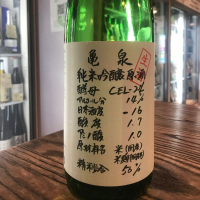 亀泉
純米吟醸 原酒
酵母 CEL-24
アルコール分 14%
日本酒度 -16
酸度 1.7
アミノ酸 1.0
原材料名 米(国産)
米麹(国産米)
精米歩合 50%